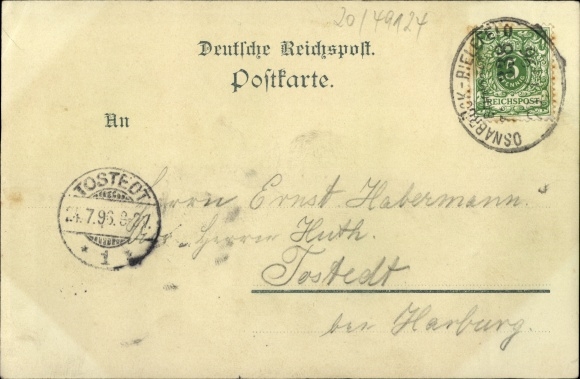 20/49124
Deutsche Reichspost.
Postkarte.
An
OSNABRÜCK-BIELEFELD
5
REICHSPOST
TOSTEDT
24.7.96. 8-9N.
* 1 *
Herrn Ernst Habermann.
Herrn Huth.
Tostedt
bei Harburg.